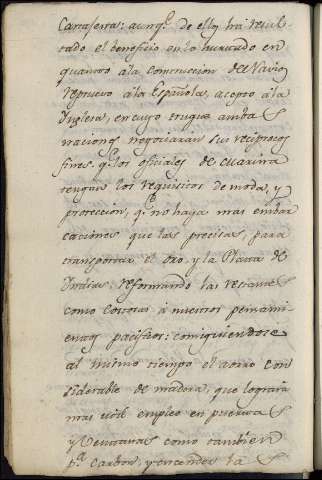 Cartasena: aunq.e de ello ha resul-
tado el beneficio en lo hurtado en
quanto à la Construccion del Navio
repruevo à la Española, acepto à la
Inglesa, en cuyo trueque ambas
naciones negociaran sus reciprocos
fines. q.e los oficiales de marina
tengan los requisitos de moda, y
proteccion, q.e no haya mas embar
caciones que las precisas, para
transportar el oro, y la Plata de
Indias: reformando las restantes
como Costosas à nuestros pensami
entos pacificos: consiguiendose
al mismo tiempo el aorro con
siderable de madera, que lograrà
mas util empleo en puertas
y Ventanas como tambien
p.a Carbon, y encender la